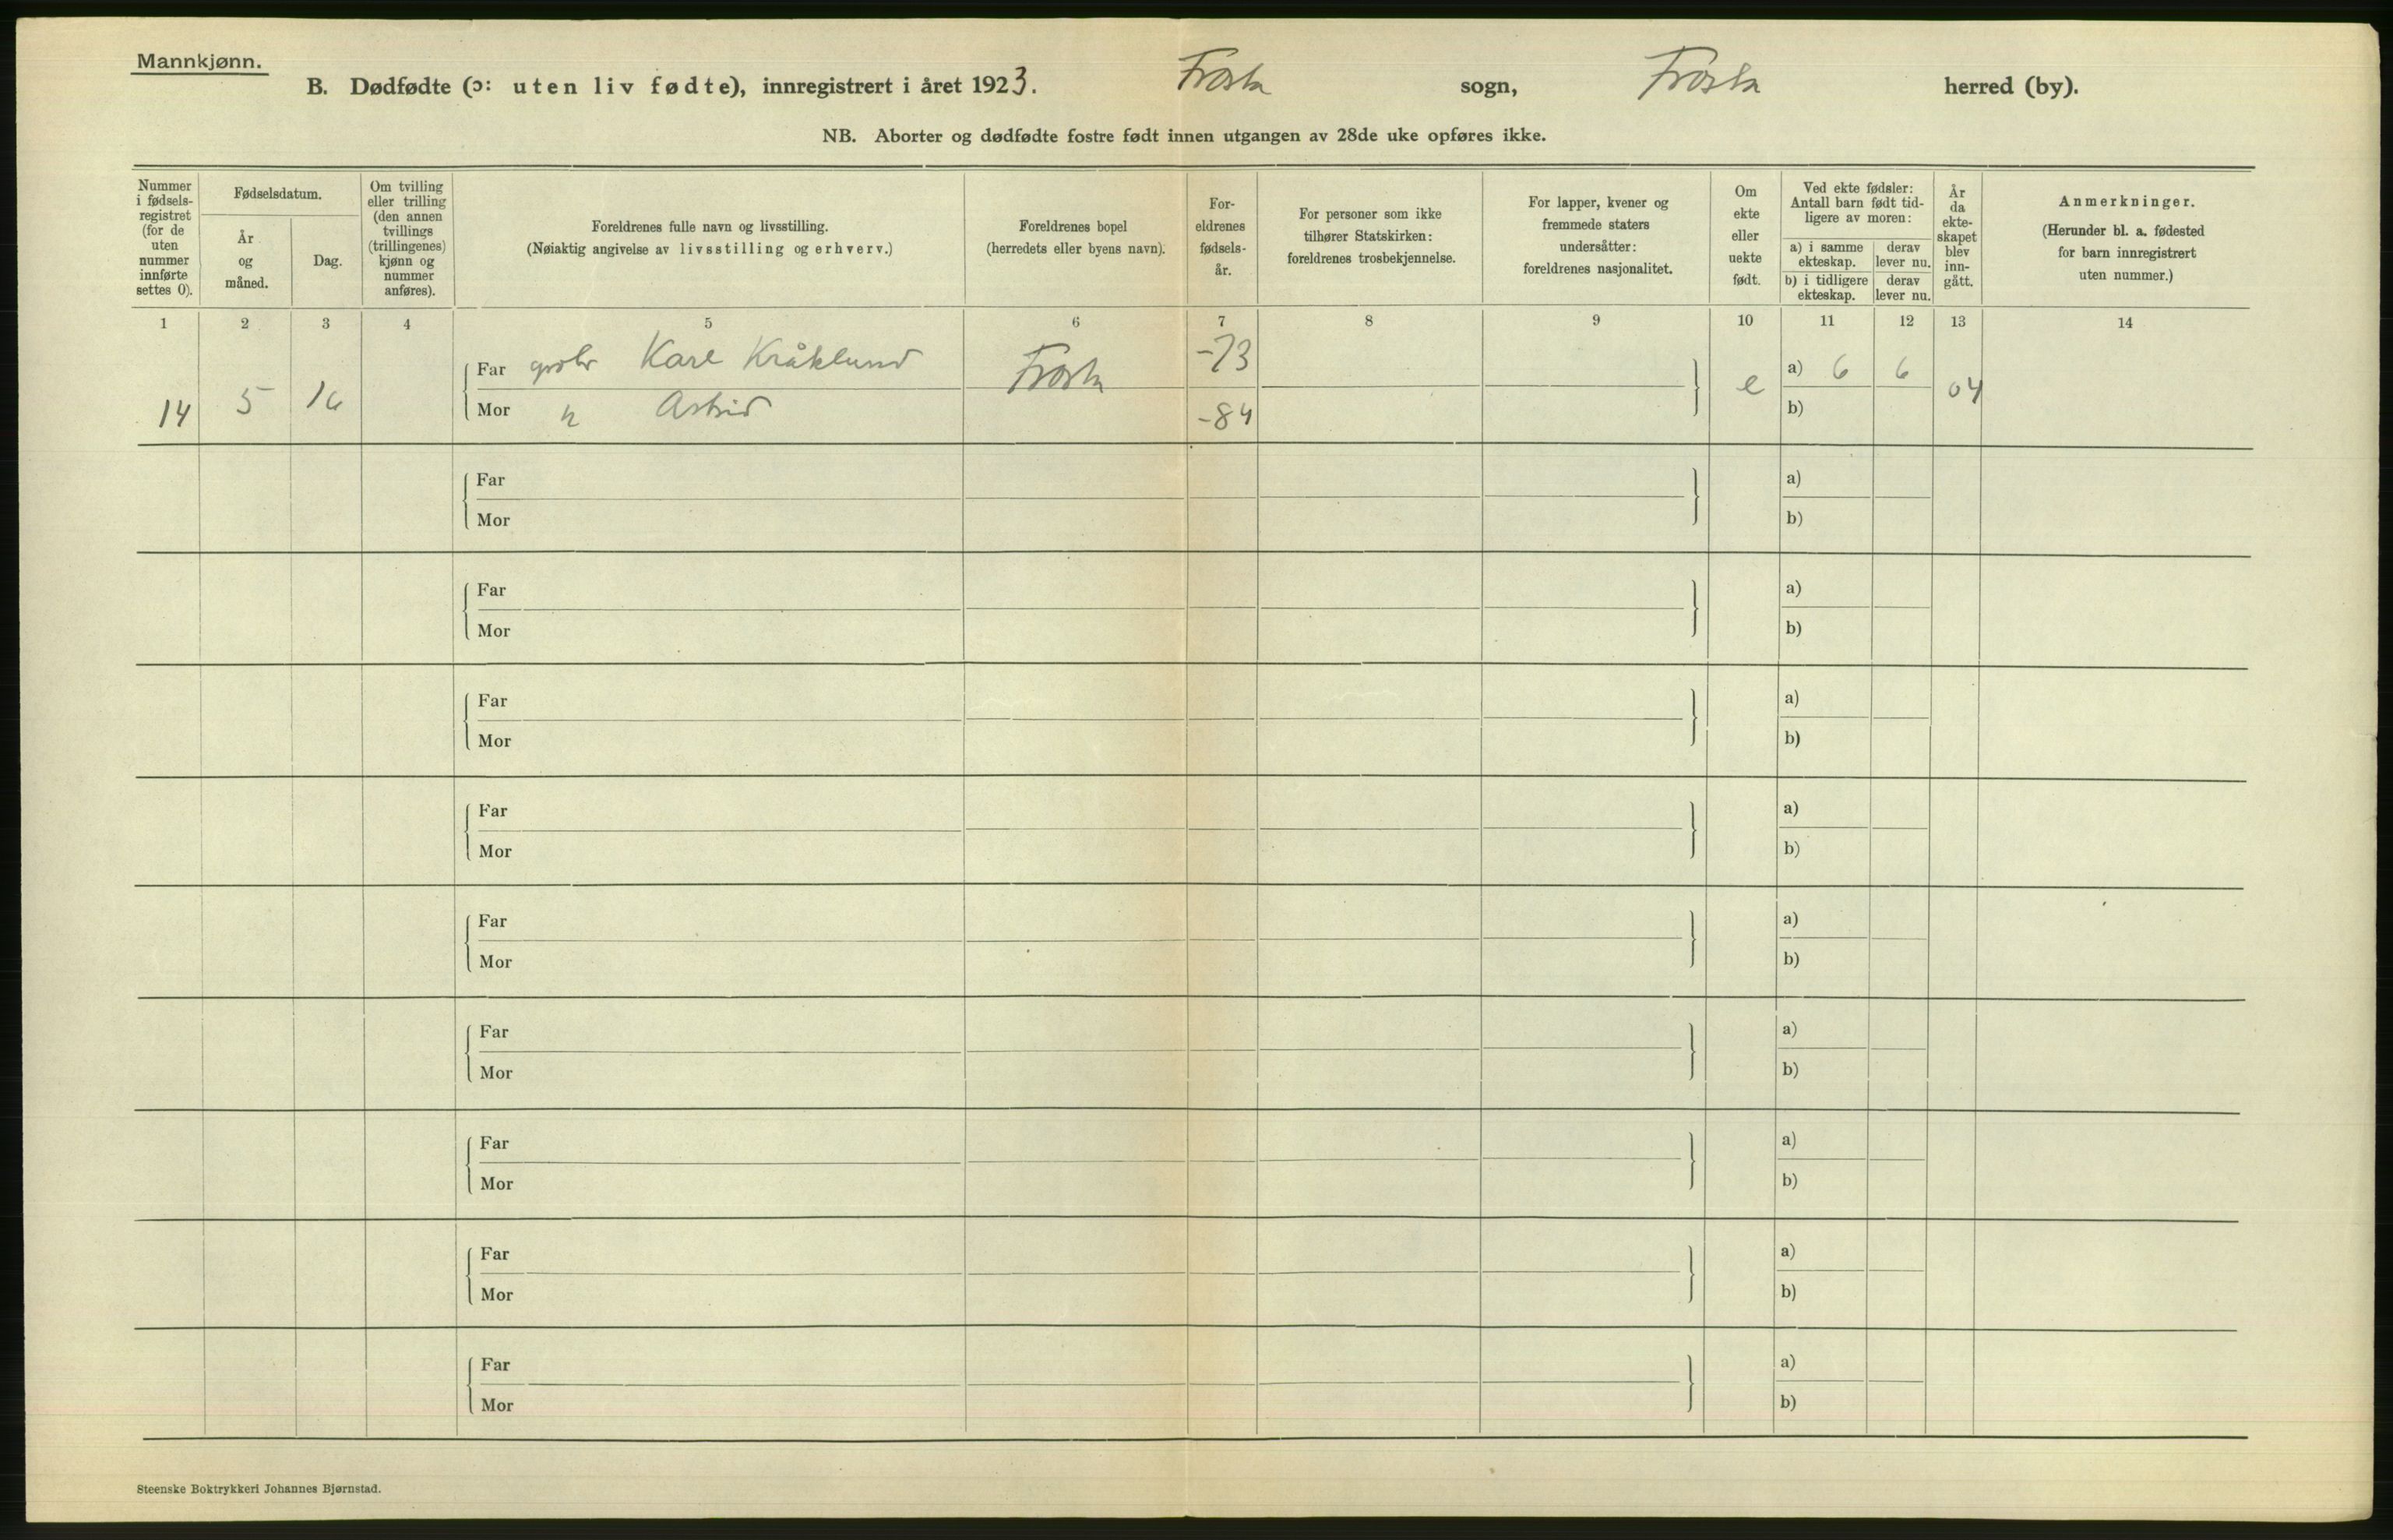 Mannkjønn.
B. Dødfødte (ɔ: uten liv fødte), innregistrert i året 1923. Frosta sogn, Frosta herred (by).
NB. Aborter og dødfødte fostre født innen utgangen av 28de uke opføres ikke.
Nummer i fødsels-registret (for de uten nummer innførte settes 0).
Fødselsdatum.
År og måned.
Dag.
Om tvilling eller trilling (den annen tvillings (trillingenes) kjønn og nummer anføres).
Foreldrenes fulle navn og livsstilling.
(Nøiaktig angivelse av livsstilling og erhverv.)
Foreldrenes bopel
(herredets eller byens navn).
For-eldrenes fødsels-år.
For personer som ikke tilhører Statskirken: foreldrenes trosbekjennelse.
For lapper, kvener og fremmede staters undersåtter: foreldrenes nasjonalitet.
Om ekte eller uekte født.
Ved ekte fødsler: Antall barn født tid-ligere av moren:
a) i samme ekteskap.
derav lever nu.
b) i tidligere ekteskap.
derav lever nu.
År da ekte-skapet blev inn-gått.
Anmerkninger.
(Herunder bl. a. fødested for barn innregistrert uten nummer.)
1 2 3 4 5 6 7 8 9 10 11 12 13 14
Far Karl Kråklund -73 a) 6 6
14 5 16 Frosta e 04
Mor h Astrid -84 b)
Far a)
Mor b)
Far a)
Mor b)
Far a)
Mor b)
Far a)
Mor b)
Far a)
Mor b)
Far a)
Mor b)
Far a)
Mor b)
Far a)
Mor b)
Far a)
Mor b)
Steenske Boktrykkeri Johannes Bjørnstad.